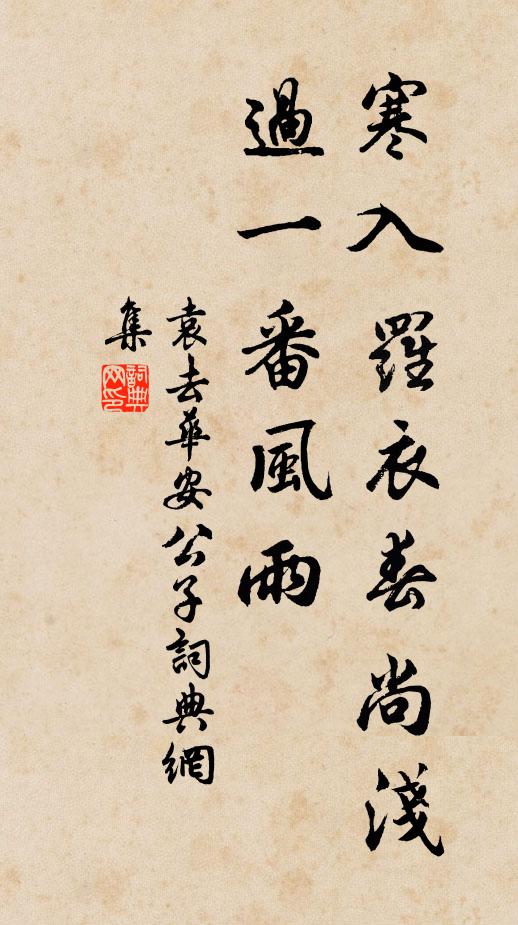 寒入羅衣春尚淺
過一番風雨
袁去華安公子詞典網
集
詞典網印